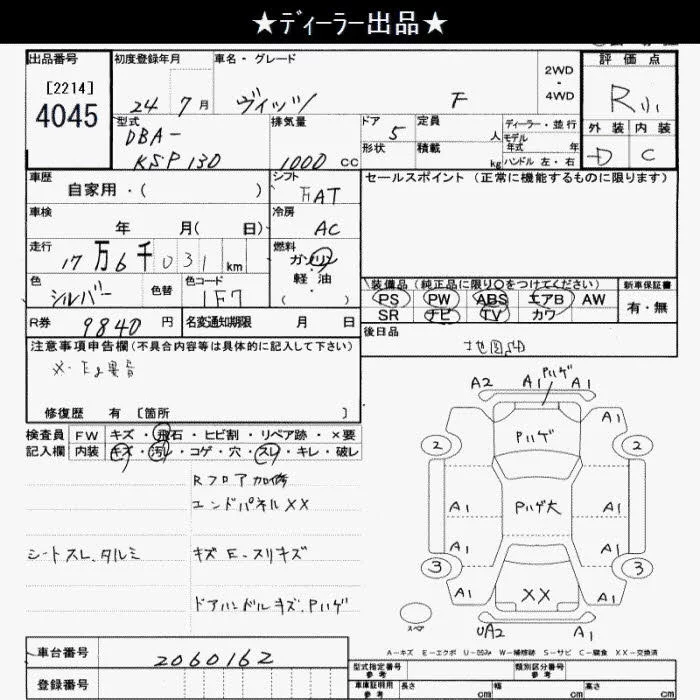 ★ディーラー出品★
出品番号
[2214]
4045
初度登録年月
24 7月
車名・グレード
ヴィッツ F
2WD
・
4WD
評価点
R
外装 内装
D C
型式
DBA-
KSP130
排気量
1000 cc
ドア 5
形状
定員 人
積載 kg
ディーラー・並行
モデル
年式 年
ハンドル 左・右
車歴
自家用・( )
シフト
FAT
車検
年 月( 日)
冷房
AC
走行
17万6千031km
燃料
ガソリン
軽油
( )
色
シルバー
色替
色コード
1F7
R券 9840円
名変通知期限 月 日
セールスポイント (正常に機能するものに限ります)
装備品 (純正品に限り○をつけてください)
PS PW ABS エアB AW
SR ナビ TV カワ
新車保証書
有・無
後日品
地図SD
注意事項申告欄(不具合内容等は具体的に記入して下さい)
メ・Eg異音
修復歴 有 [箇所 ]
検査員
記入欄
FW キズ・飛石・ヒビ割・リペア跡・×要
内装 キズ・汚レ・コゲ・穴・スレ・キレ・破レ
Rフロア加修
エンドパネルXX
シートスレ、タルミ
キズE-スリキズ
ドアハンドルキズ、Pハゲ
A2 A1 Pハゲ A1
A1
2 Pハゲ 2
A1 Pハゲ大 A1
A1 A1
3 3
A1 XX A1
スペア
UA2 A1
A-キズ E-エクボ U-凹み W-補修跡 S-サビ C-腐食 XX-交換済
車台番号
2060162
登録番号
型式指定番号
参考
類別区分番号
参考
車庫証明用
参考
長さ cm
幅 cm
高さ cm